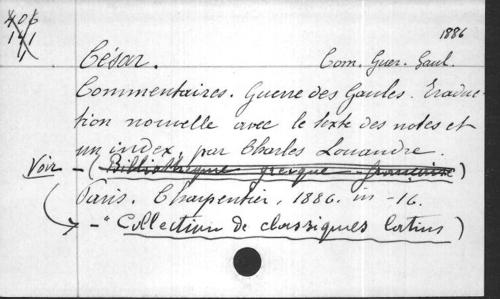 406
141
1
1886
César. Com. Guer. Gaul.
Commentaires. Guerre des Gaules. Traduc-
tion nouvelle avec le texte des notes et
un index par Charles Louandre.
Voir - (Bibliothèque grecque-française)
Paris. Charpentier, 1886. in-16.
- "Collection de classiques latins)